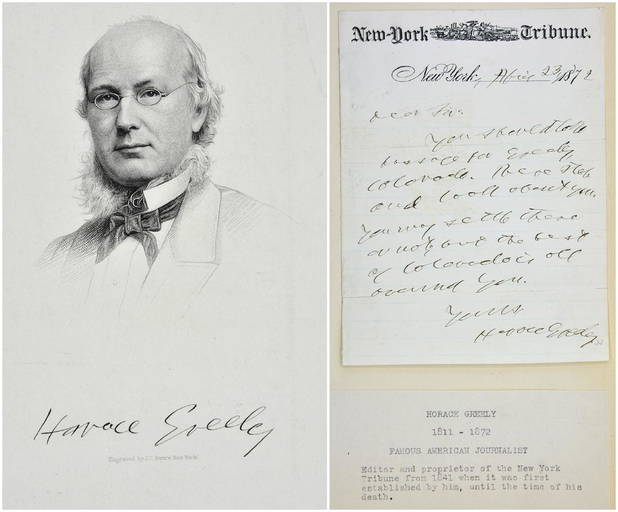 Horace Greeley
Engraved by J.C. Buttre New York
New-York Tribune.
New York, April 23, 1872
Dear Sir:
You should take
passage for Greeley,
Colorado. There stop
and look about you.
You may settle there
or not, but the best
of Colorado is all
around you.
Yours,
Horace Greeley.
HORACE GREELY
1811 - 1872
FAMOUS AMERICAN JOURNALIST
Editor and proprietor of the New York
Tribune from 1841 when it was first
established by him, until the time of his
death.